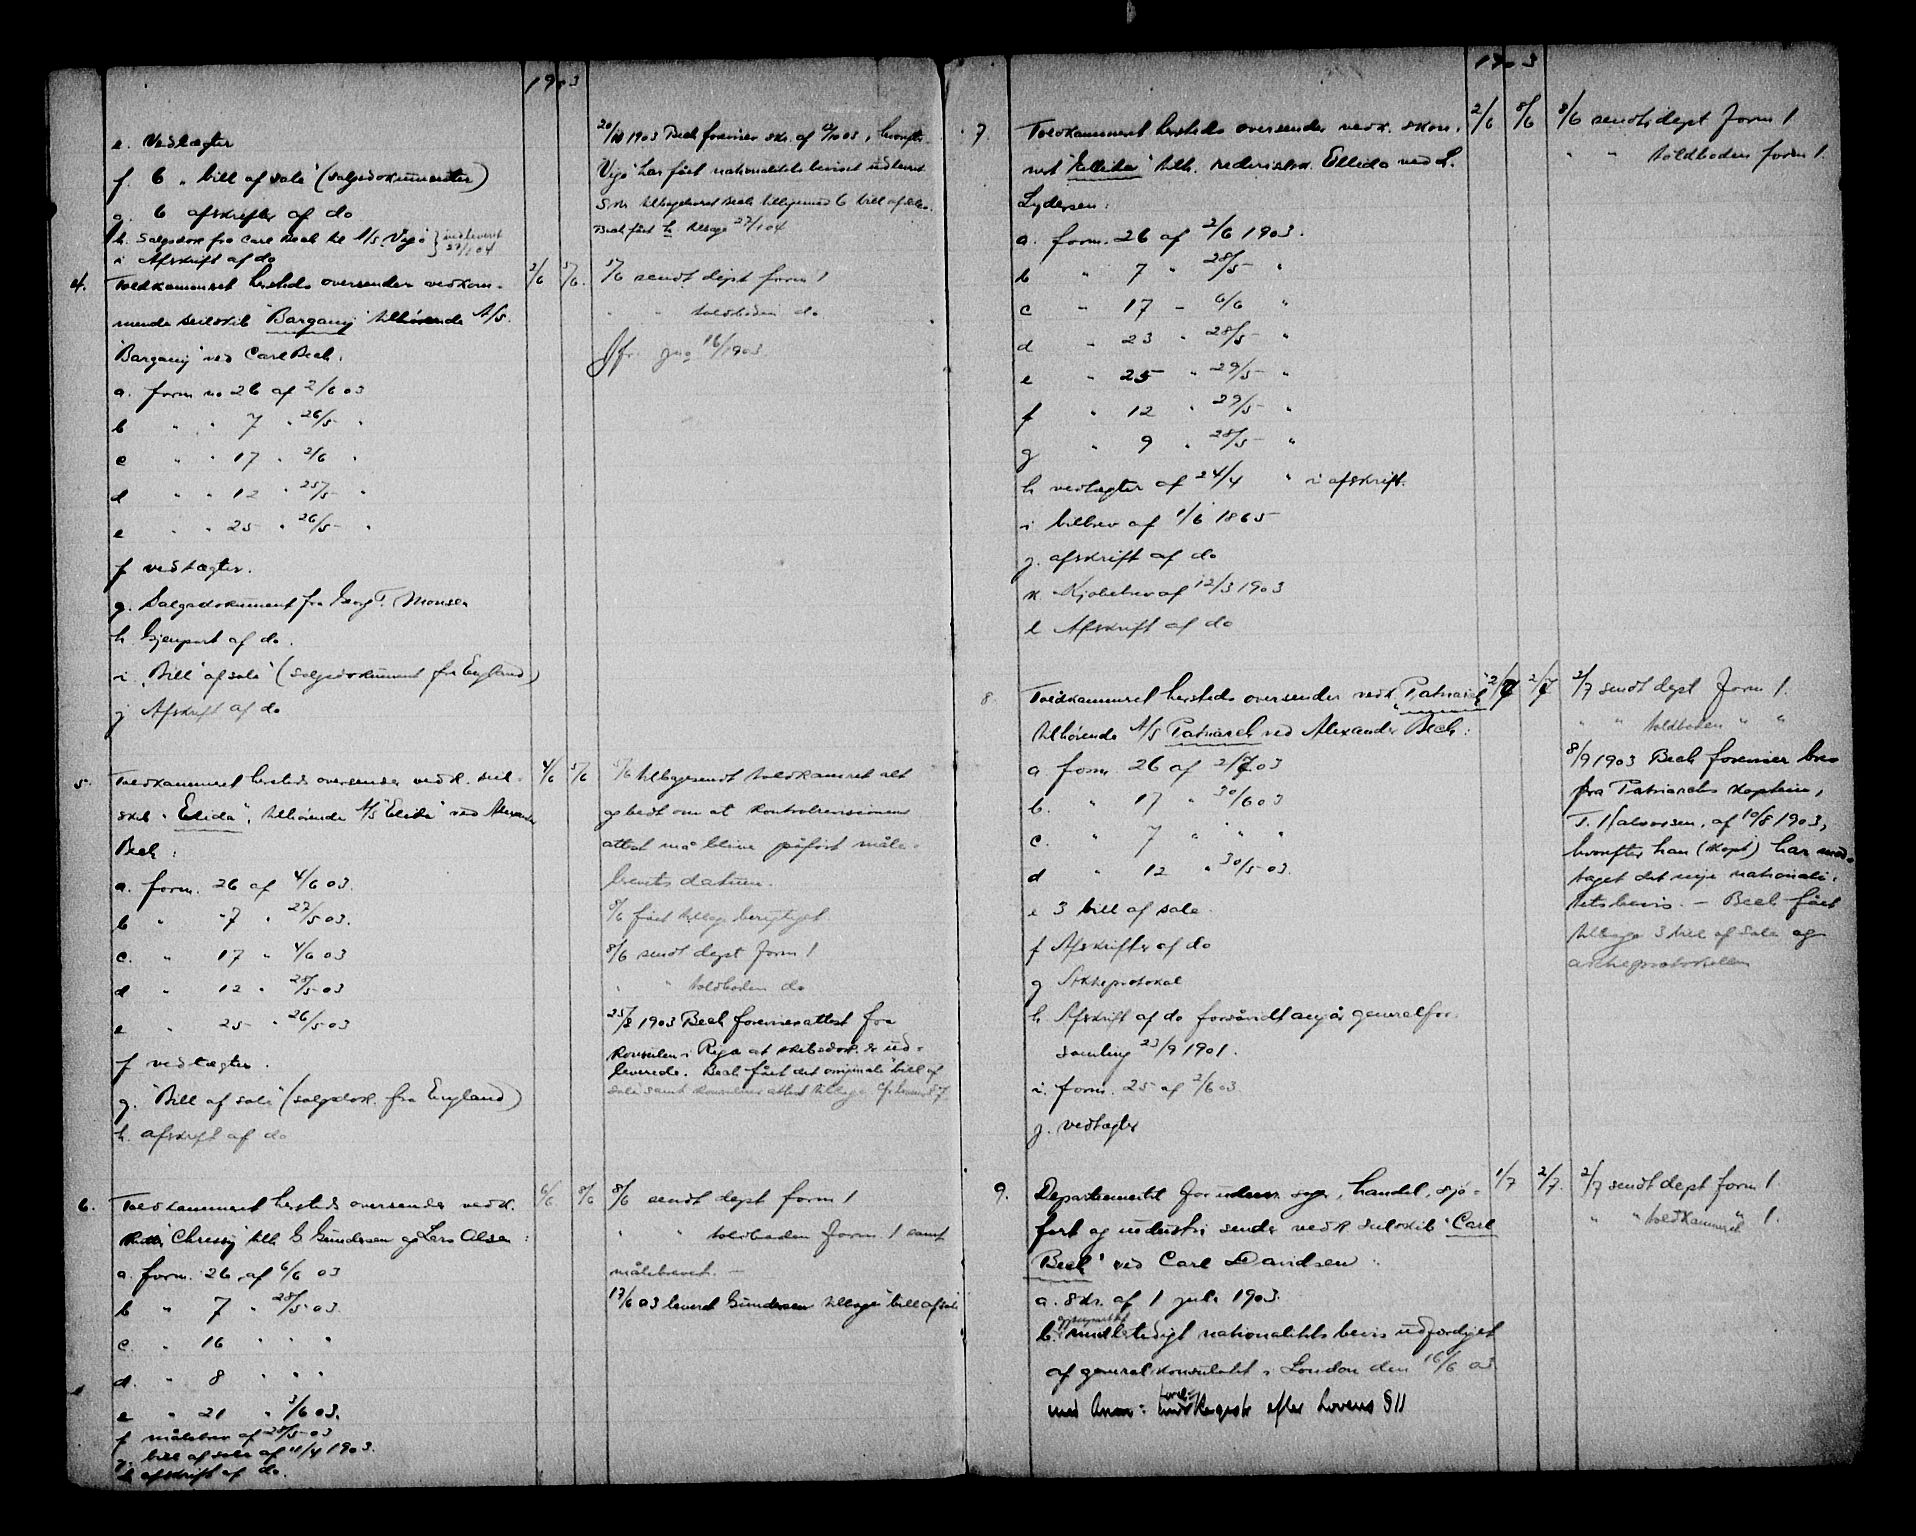 1903
e. Vedtægter
f. 6 "bill of sale" (salgsdokumenter)
g. 6 afskrifter af do
h. Salgsdok fra Carl Bech til A/S "Vigo" } udleveret 27/1 04
i Afskrift af do
20/10 1903 Bech foreviser skr. af 03, hvorefter
"Vigo" har fået nationalitetsbeviset udleveret
Bech tilligemed 6 bill of sale.
Bech fåt h tilbage 27/1 04
4. Toldkammeret hersteds oversender vedkom- 2/6 5/6.
mende seilskib "Bargany" tilhørende A/S.
"Bargany" ved Carl Bech:
a. form no 26 af 2/6 03
b " " 7 " 26/5 "
c " " 17 " 2/6 "
d " " 12 " 25/5 "
e " " 25 " 26/5 "
f vedtægter.
g. Salgsdokument fra Georg T. Monsen
h. Gjenpart af do.
i. "Bill of sale" (salgsdokument fra England)
j Afskrift af do
5/6 sendt dept form 1
" " toldboden do
Jfr. 16/1903
5. Toldkammeret hersteds oversender vedk. seil- 4/6 5/6
skib "Elida", tilhørende A/S "Elida" ved Alexander
Bech:
a. form. 26 af 4/6 03.
b " 7 " 27/5 03.
c. " 17 " 4/6 03
d " 12 " 28/5 03
e " 25 " 26/5 03
f vedtægter.
g. "Bill of sale" (salgsdok. fra England)
h. afskrift af do
5/6 tilbagesendt toldkamret alt
og bedt om at
attest må blive påført måle-
brevets datum.
8/6 fåt tilbage berigtiget
8/6 sendt dept form 1
" " toldboden do
25/8 1903 Bech foreviser attest fra
konsulen i Riga at skibsdok. er ud-
leverede. Bech fåt det originale "bill of
sale" samt konsulens attest tilbage
6. Toldkammeret hersteds oversender vedk. 6/6 8/6
"Chrissy" tilh G Gundersen og Lars Olsen:
a. form. 26 af 6/6 03
b " 7 " 28/5 03.
c " 16 " " "
d. " 8 " " "
e " 21 " 3/6 03.
f målebrev af 28/5 03
g. bill of sale af 11/4 1903.
h afskrift af do.
8/6 sendt dept form 1
" " toldboden form 1 samt
målebrevet. —
17/6 03 leveret Gundersen tilbage "bill of sale"
1903
7 Toldkammeret hersteds oversender vedk. skon- 2/6 8/6
nert "Ellida" tilh. rederiselsk. Ellida ved L.
Lydersen:
a. form. 26 af 2/6 1903.
b " 7 " 28/5 "
c " 17 " 6/6 "
d " 23 " 28/5 "
e " 25 " 29/5 "
f " 12 " 29/5 "
g " 9 " 28/5 "
h vedtægter af 24/4 " i afskrift.
i bilbrev af 1/6 1865
j. afskrift af do
k. Kjøbebrev af 12/3 1903
l Afskrift af do
8/6 sendt dept form 1
" " toldboden form 1.
8 Toldkammeret hersteds oversender vedk. "Patriarch" 2/7 2/7
tilhørende A/S Patriarch ved Alexander Bech:
a form. 26 af 2/7 03
b. " 17 " 30/6 03
c. " 7 " " "
d " 12 " 30/5 03.
e 3 bill of sale.
f Afskrifter af do
g Aktieprotokol
h. Afskrift af do forsåvidt angår generalfor-
samling 23/9 1901.
i. form. 25 af 2/6 03.
j. vedtægter
2/7 sendt dept form 1.
" " toldboden " "
8/9 1903 Bech foreviser brev
fra Patriarchs kaptein,
T. Halvorsen, af 10/8 1903,
hvorefter han (kapt) har mod-
taget det nye nationali-
tetsbevis. — Bech fået
tilbage 3 bill of sale og
aktieprotokollen
9. Departementet for udenr. sager, handel, sjø- 1/7 2/7.
fart og industri sender vedk. seilskib "Carl
Bech" ved Carl Davidsen:
a. skr. af 1 juli 1903.
b. midlertidigt nationalitetsbevis udfærdiget
af generalkonsulatet i London den 16/6 03
med Anm: efter Lovens §11
2/7 sendt dept form 1.
" " toldkammeret " 1.